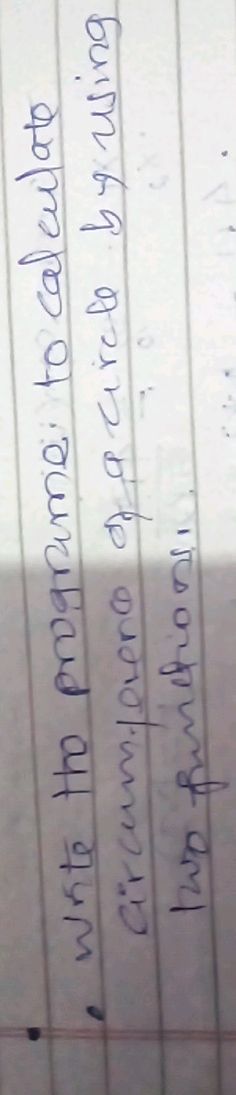 write the programe to calculate
circumference of a circle by using
two functions.